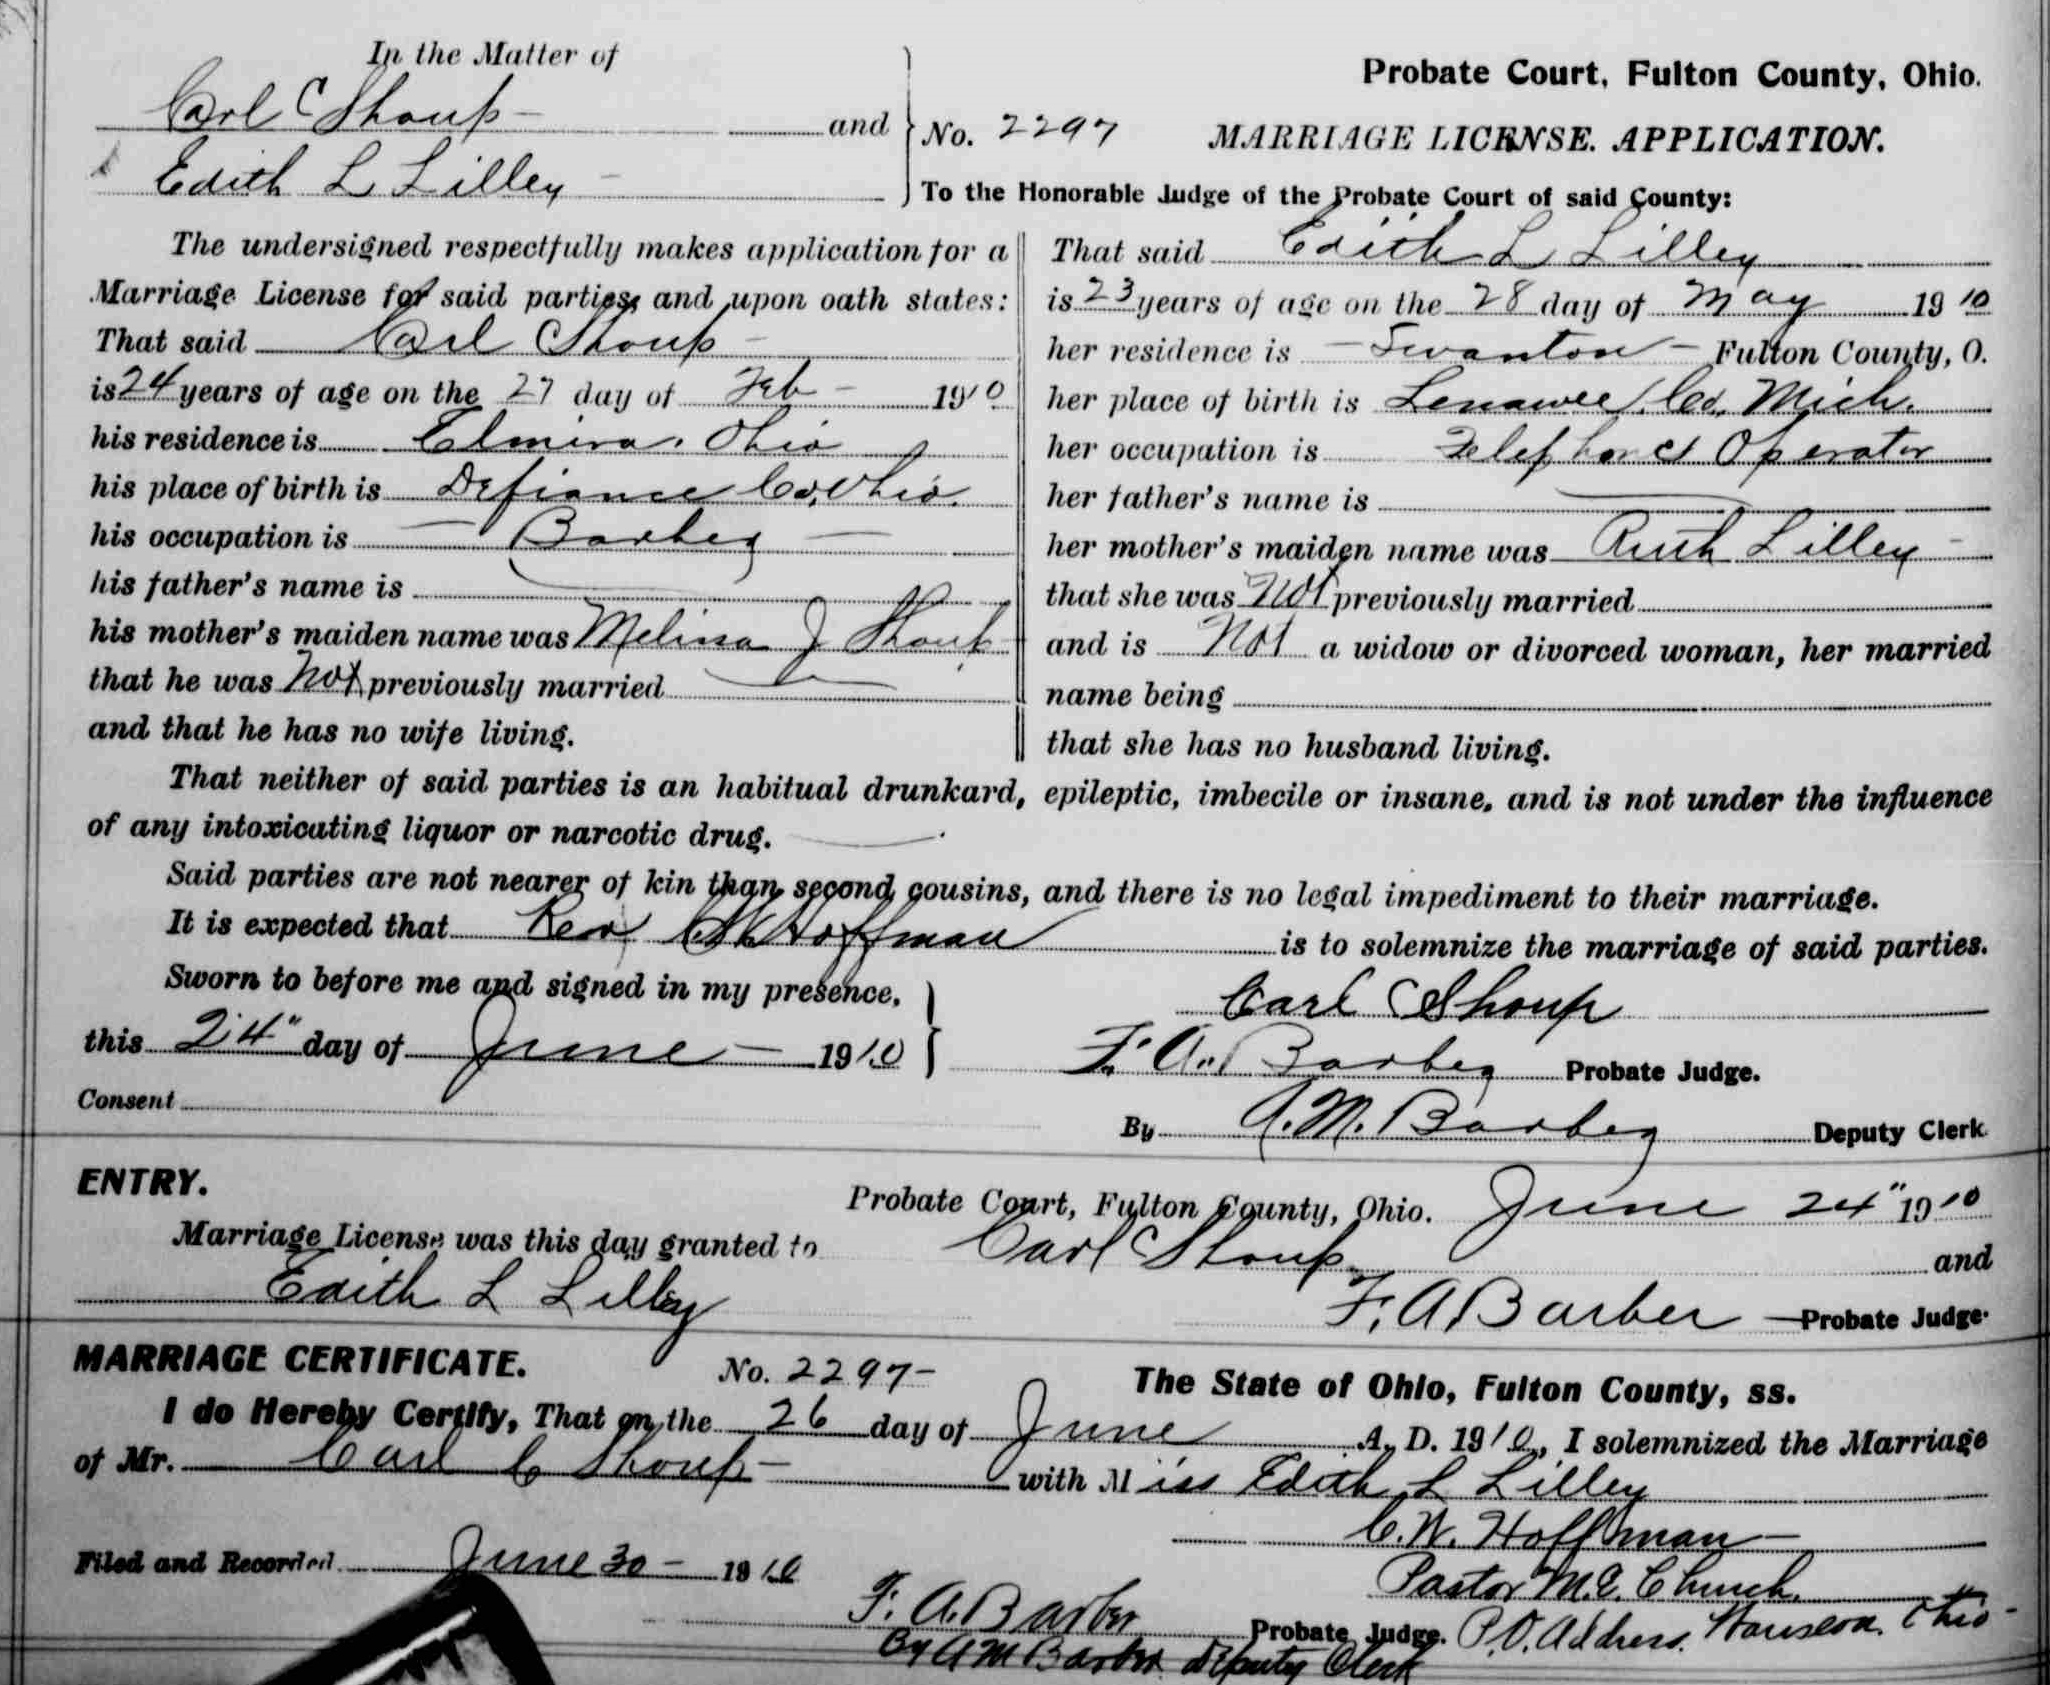 In the Matter of
Carl C Shoup and
Edith L Lilley
Probate Court, Fulton County, Ohio.
No. 2297 MARRIAGE LICENSE. APPLICATION.
To the Honorable Judge of the Probate Court of said County:
The undersigned respectfully makes application for a
Marriage License for said parties, and upon oath states:
That said Carl Shoup
is 24 years of age on the 27 day of Feb 1910
his residence is Elmira, Ohio
his place of birth is Defiance Co, Ohio.
his occupation is Barber
his father's name is
his mother's maiden name was Melissa J Shoup
that he was not previously married
and that he has no wife living.
That said Edith L Lilley
is 23 years of age on the 28 day of May 1910
her residence is Swanton Fulton County, O.
her place of birth is Lenawee Co, Mich.
her occupation is Telephone Operator
her father's name is
her mother's maiden name was Ruth Lilley
that she was not previously married
and is Not a widow or divorced woman, her married
name being
that she has no husband living.
That neither of said parties is an habitual drunkard, epileptic, imbecile or insane, and is not under the influence
of any intoxicating liquor or narcotic drug.
Said parties are not nearer of kin than second cousins, and there is no legal impediment to their marriage.
It is expected that Rev C W Hoffman is to solemnize the marriage of said parties.
Sworn to before me and signed in my presence,
Carl C Shoup
this 24" day of June 1910
F. A. Barber Probate Judge.
Consent
By A. M. Barber Deputy Clerk
ENTRY.
Probate Court, Fulton County, Ohio. June 24" 1910
Marriage License was this day granted to Carl Shoup and
Edith L Lilley
F. A Barber Probate Judge.
MARRIAGE CERTIFICATE. No. 2297 The State of Ohio, Fulton County, ss.
I do Hereby Certify, That on the 26 day of June A. D. 1910, I solemnized the Marriage
of Mr. Carl C Shoup with Miss Edith L Lilley
C. W. Hoffman
Filed and Recorded June 30 1910
Pastor M. E. Church.
F. A. Barber Probate Judge. P.O. Address. Wauseon, Ohio
By A M Barber Deputy Clerk